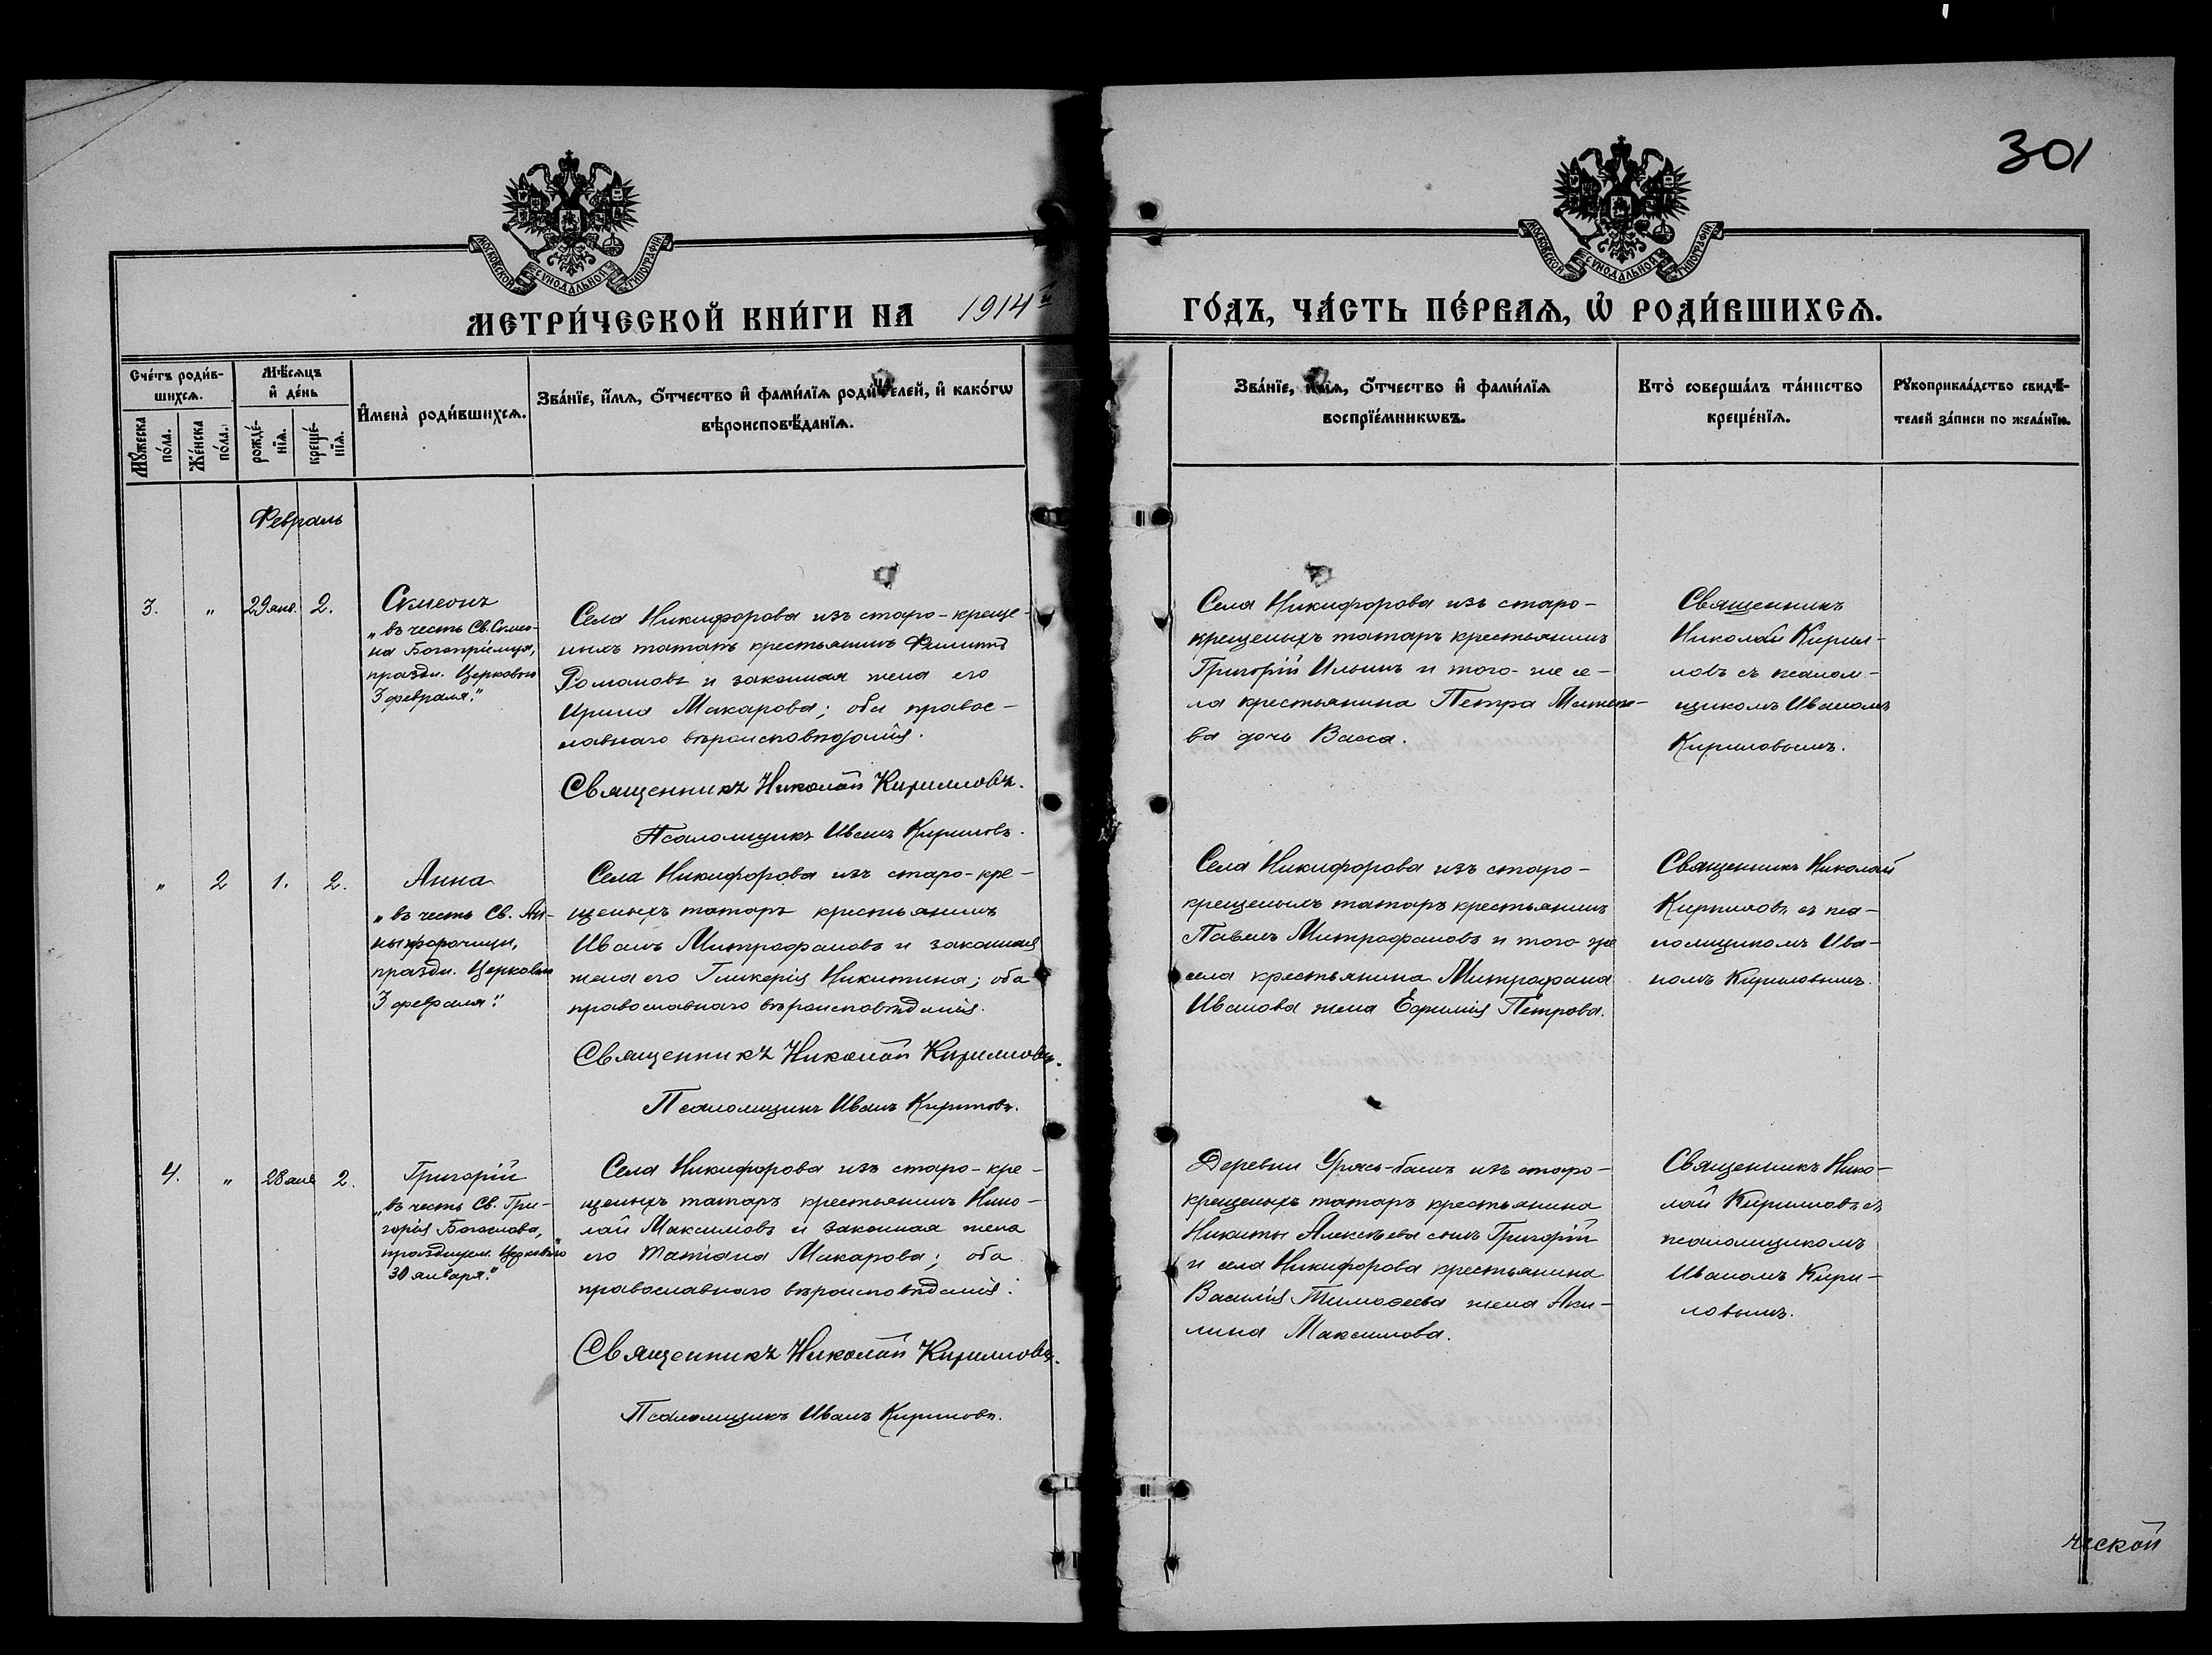 301
МОСКОВСКОЙ СѴНОДАЛЬНОЙ ТИПОГРАФІИ
МОСКОВСКОЙ СѴНОДАЛЬНОЙ ТИПОГРАФІИ
МЕТРИ́ЧЕСКОЙ КНИ́ГИ НА 1914й
ГО́ДЪ, ЧА́СТЬ ПЕ́РВАѦ, Ѡ҆ РОДИ́ВШИХСѦ.
Сче́тъ роди́в-
шихсѧ.
Мꙋ́жеска по́ла.
Же́нска по́ла.
Мѣ́сѧцъ
и҆ де́нь
рожде́-
нїѧ.
креще́-
нїѧ.
И҆мена̀ роди́вшихсѧ.
Зва́нїе, и҆́мѧ, ѻ҆́тчество и҆ фами́лїѧ роди́телей, и҆ како́гѡ
вѣроисповѣ́данїѧ.
Зва́нїе, и҆́мѧ, ѻ҆́тчество и҆ фами́лїѧ
воспрїе́мникѡвъ.
Кто̀ соверша́лъ та́инство
креще́нїѧ.
Рꙋкоприкла́дство свидѣ́-
телей за́писи по жела́нїю.
Февраль
3. " 29 янв. 2.
Симеонъ
„въ честь Св. Симео-
на Богопріимца,
праздн. Церковью
3 февраля."
Села Никифорова изъ старо-креще-
ныхъ татаръ крестьянинъ Филиппъ
Романовъ и законная жена его
Ирина Макарова; оба правос-
лавнаго вѣроисповѣданія.
Священникъ Николай Кирилловъ.
Псаломщикъ Иванъ Кириловъ.
Села Никифорова изъ старо-
крещеныхъ татаръ крестьянинъ
Григорій Ильинъ и того-же се-
ла крестьянина Петра
ва дочь Васса.
Священникъ
Николай Кирил-
ловъ съ псалом-
щикомъ Иваномъ
Кириловымъ.
" 2 1. 2.
Анна
„въ честь Св. Ан-
ны пророчицы,
праздн. Церковью
3 февраля."
Села Никифорова изъ старо-кре-
щеныхъ татаръ крестьянинъ
Иванъ Митрофановъ и законная
жена его Гликерія Никитина; оба
православнаго вѣроисповѣданія.
Священникъ Николай Кирилловъ.
Псаломщикъ Иванъ Кириловъ.
Села Никифорова изъ старо-
крещеныхъ татаръ крестьянинъ
Павелъ Митрофановъ и того же
села крестьянина Митрофана
Иванова жена Евфимія Петрова.
Священникъ Николай
Кирилловъ съ пса-
ломщикомъ Ива-
номъ Кириловымъ.
4. " 28 янв 2.
Григорій
„въ честь Св. Гри-
горія Богослова,
празднуем. Церковью
30 января."
Села Никифорова изъ старо-кре-
щеныхъ татаръ крестьянинъ Нико-
лай Максимовъ и законная жена
его Татіана Макарова; оба
православнаго вѣроисповѣданія.
Священникъ Николай Кирилловъ.
Псаломщикъ Иванъ Кириловъ.
Деревни Урясь-башъ изъ старо-
крещеныхъ татаръ крестьянина
Никиты Алексѣева сынъ Григорій
и села Никифорова крестьянина
Василія Тимоѳеева жена Аки-
лина Максимова.
Священникъ Нико-
лай Кирилловъ съ
псаломщикомъ
Иваномъ Кири-
ловымъ.
ческой